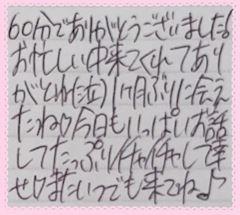 60分でありがとうございました!
お忙しい中来てくれてあり
がとね(泣)1ヶ月ぶりに会え
たね♡今日もいっぱいお話
してたっぷりイチャイチャして幸
せ♡またいつでも来てね♪